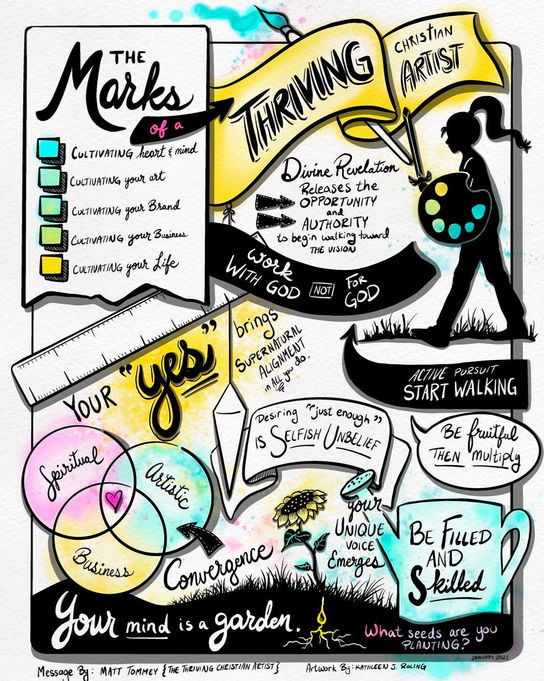 THE
Marks
of a
THRIVING
CHRISTIAN
ARTIST
CULTIVATING heart & mind
CULTIVATING your art
CULTIVATING your Brand
CULTIVATING your Business
CULTIVATING your Life
Divine Revelation
RELEASES the
OPPORTUNITY
and
AUTHORITY
to begin walking toward
THE VISION
Work
WITH GOD NOT FOR
GOD
ACTIVE PURSUIT
START WALKING
YOUR "yes" brings
SUPERNATURAL
ALIGNMENT
in ALL you do.
Desiring "just enough"
IS SELFISH UNBELIEF
BE fruitful
THEN multiply
Spiritual
Artistic
Business
Convergence
your
UNIQUE
VOICE
Emerges
BE FILLED
AND
Skilled
Your mind is a garden.
What seeds are you
PLANTING?
JANUARY 2021
Message By: MATT TOMMEY {THE THRIVING CHRISTIAN ARTIST}
Artwork By: KATHLEEN J. ROLING